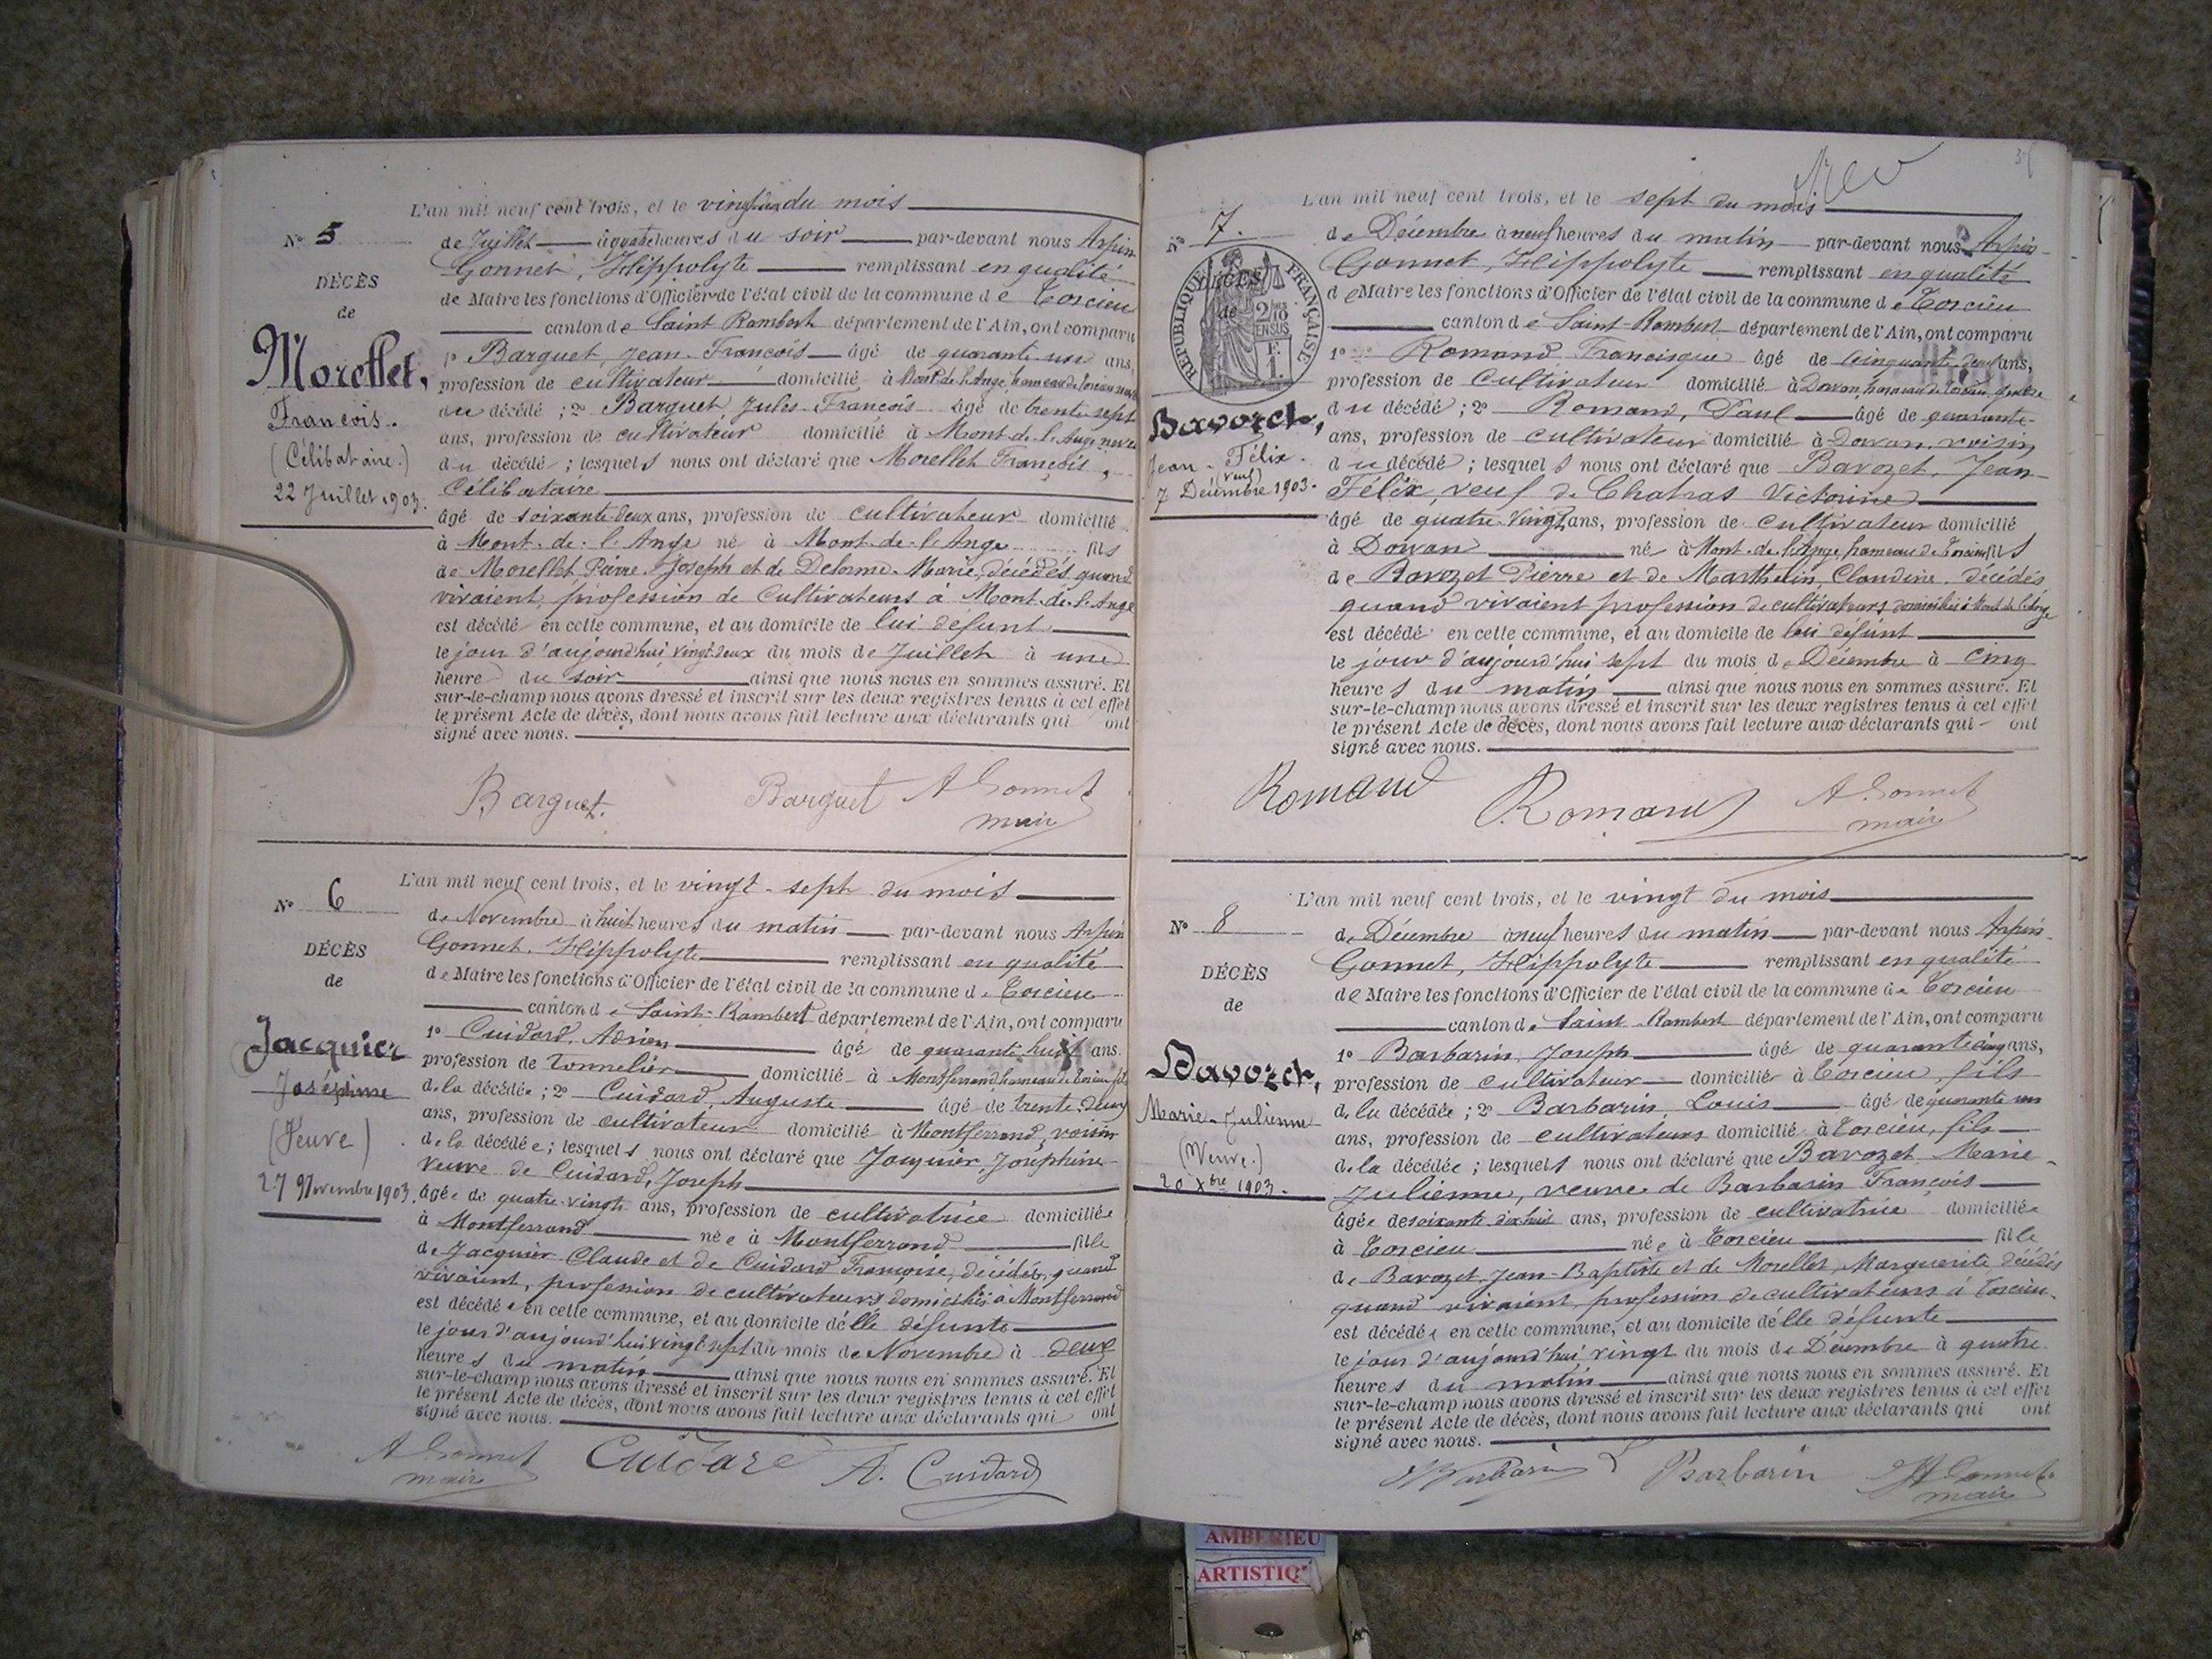 L'an mil neuf cent trois, et le vingt deux du mois
N° 5
de Juillet à quatre heures du soir par-devant nous Arpin
Gonnet, Hippolyte remplissant en qualité
DÉCÈS
de
de Maire les fonctions d'Officier de l'état civil de la commune de Torcieu
canton de Saint Rambert département de l'Ain, ont comparu
Morellet,
François.
(Célibataire.)
22 Juillet 1903.
1° Barquet, Jean-François âgé de quarante-un ans,
profession de cultivateur domicilié à Mont-de-l'Ange, hameau de Torcieu
du décédé ; 2° Barquet, Jules-François âgé de trente-sept
ans, profession de cultivateur domicilié à Mont-de-l'Ange, neveu
du décédé ; lesquels nous ont déclaré que Morellet François,
Célibataire
âgé de soixante-deux ans, profession de cultivateur domicilié
à Mont-de-l'Ange né à Mont-de-l'Ange fils
de Morellet Pierre-Joseph et de Delorme-Marie, décédés quand
vivaient, profession de Cultivateurs à Mont-de-l'Ange
est décédé en cette commune, et au domicile de lui défunt
le jour d'aujourd'hui vingt-deux du mois de Juillet à une
heure du soir ainsi que nous nous en sommes assuré. Et
sur-le-champ nous avons dressé et inscrit sur les deux registres tenus à cet effet
le présent Acte de décès, dont nous avons fait lecture aux déclarants qui ont
signé avec nous.
Barquet. Barquet A Gonnet
maire
L'an mil neuf cent trois, et le vingt-sept du mois
N° 6
de Novembre à huit heures du matin par-devant nous Arpin
Gonnet, Hippolyte remplissant en qualité
DÉCÈS
de
de Maire les fonctions d'Officier de l'état civil de la commune de Torcieu
canton de Saint-Rambert département de l'Ain, ont comparu
Jacquier
Joséphine
(Veuve)
27 9bre 1903.
1° Cuidard, Adrien âgé de quarante-huit ans.
profession de tonnelier domicilié à Montferrand hameau de Torcieu fils
de la décédée ; 2° Cuidard, Auguste âgé de trente-deux
ans, profession de cultivateur domicilié à Montferrand, voisin
de la décédée ; lesquels nous ont déclaré que Jacquier, Joséphine
veuve de Cuidard, Joseph
âgée de quatre-vingts ans, profession de cultivatrice domiciliée
à Montferrand née à Montferrand fille
de Jacquier Claude et de Cuidard Françoise, décédés, quand
vivaient, profession de cultivateurs domiciliés à Montferrand
est décédée en cette commune, et au domicile d'elle défunte
le jour d'aujourd'hui vingt-sept du mois de Novembre à deux
heures du matin ainsi que nous nous en sommes assuré. Et
sur-le-champ nous avons dressé et inscrit sur les deux registres tenus à cet effet
le présent Acte de décès, dont nous avons fait lecture aux déclarants qui ont
signé avec nous.
A Gonnet Cuidard A. Cuidard
maire
L'an mil neuf cent trois, et le sept du mois
N° 7.
de Décembre à neuf heures du matin par-devant nous Arpin-
Gonnet, Hippolyte remplissant en qualité
RÉPUBLIQUE FRANÇAISE
DÉCÈS
de
2/10 EN SUS
de Maire les fonctions d'Officier de l'état civil de la commune de Torcieu
canton de Saint-Rambert département de l'Ain, ont comparu
Bavozet,
Jean-Félix.
(veuf)
7 Décembre 1903.
1° Romand Francisque âgé de cinquante-deux ans,
profession de Cultivateur domicilié à Dorvan, hameau de Torcieu
du décédé ; 2° Romand, Paul âgé de quarante-
ans, profession de cultivateur domicilié à Dorvan, voisin
du décédé ; lesquels nous ont déclaré que Bavozet, Jean-
Félix, veuf de Chatras Victorine
âgé de quatre-vingts ans, profession de cultivateur domicilié
à Dorvan né à Mont-de-l'Ange hameau de Torcieu fils
de Bavozet Pierre et de Marthelin, Claudine, décédés
quand vivaient profession de cultivateurs domiciliés à Mont-de-l'Ange
est décédé en cette commune, et au domicile de lui défunt
le jour d'aujourd'hui sept du mois de Décembre à cinq
heures du matin ainsi que nous nous en sommes assuré. Et
sur-le-champ nous avons dressé et inscrit sur les deux registres tenus à cet effet
le présent Acte de décès, dont nous avons fait lecture aux déclarants qui ont
signé avec nous.
Romand Romand A Gonnet
maire
L'an mil neuf cent trois, et le vingt du mois
N° 8
de Décembre à neuf heures du matin par-devant nous Arpin-
Gonnet, Hippolyte remplissant en qualité
DÉCÈS
de
de Maire les fonctions d'Officier de l'état civil de la commune de Torcieu
canton de Saint-Rambert département de l'Ain, ont comparu
Bavozet,
Marie-Julienne
(Veuve.)
20 Xbre 1903.
1° Barbarin Joseph âgé de quarante-cinq ans,
profession de cultivateur domicilié à Torcieu, fils
de la décédée ; 2° Barbarin, Louis âgé de quarante un
ans, profession de cultivateurs domicilié à Torcieu, fils
de la décédée ; lesquels nous ont déclaré que Bavozet Marie-
Julienne, veuve de Barbarin François
âgée de soixante-dix-huit ans, profession de cultivatrice domiciliée
à Torcieu née à Torcieu fille
de Bavozet, Jean-Baptiste et de Morellet, Marguerite décédés
quand vivaient profession de cultivateurs à Torcieu.
est décédée en cette commune, et au domicile d'elle défunte
le jour d'aujourd'hui vingt du mois de Décembre à quatre
heures du matin ainsi que nous nous en sommes assuré. Et
sur-le-champ nous avons dressé et inscrit sur les deux registres tenus à cet effet
le présent Acte de décès, dont nous avons fait lecture aux déclarants qui ont
signé avec nous.
Barbarin Barbarin A Gonnet
maire
AMBERIEU
ARTISTIQ